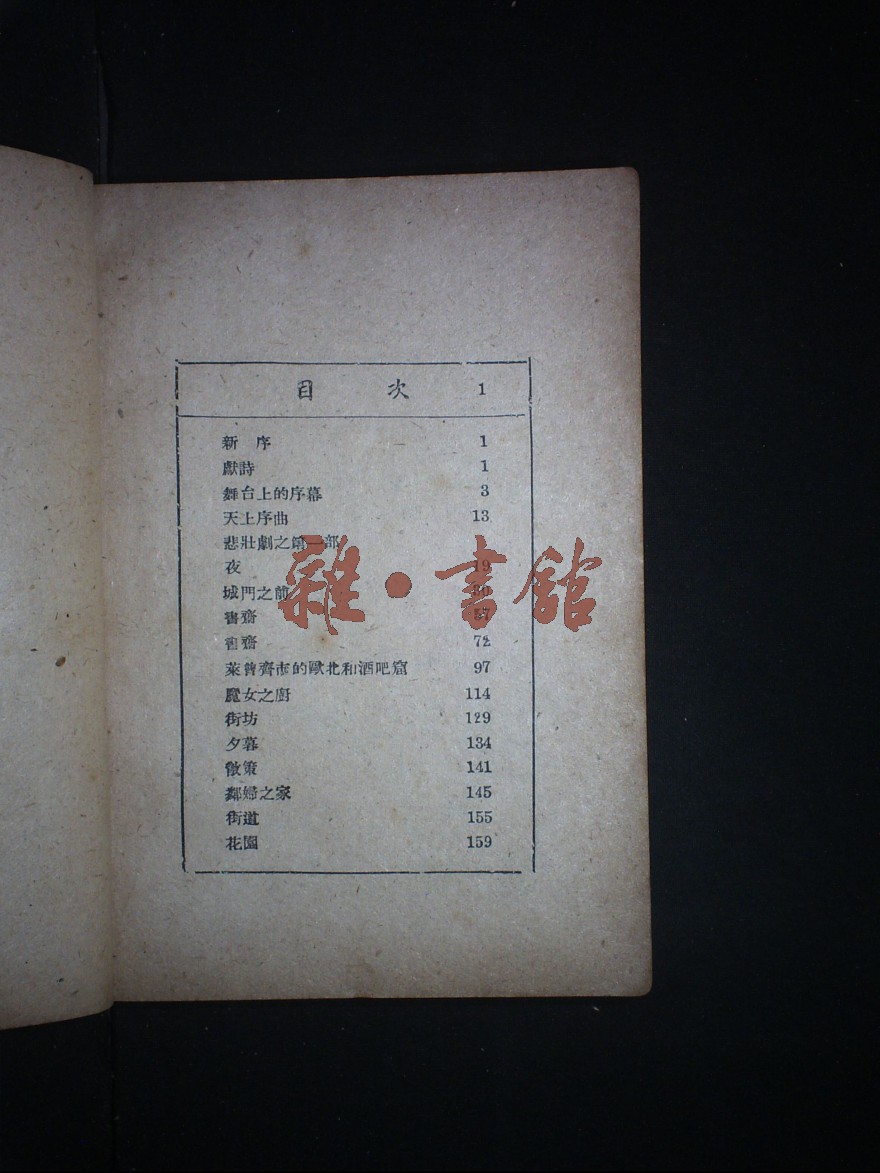 目 次 1
新 序 1
獻詩 1
舞台上的序幕 3
天上序曲 13
悲壯劇之第一部
夜 19
城門之前 30
書齋 57
書齋 72
萊普齊市的歐北和酒吧窟 97
魔女之廚 114
街坊 129
夕暮 134
散策 141
鄰婦之家 145
街道 155
花園 159
雜·書館